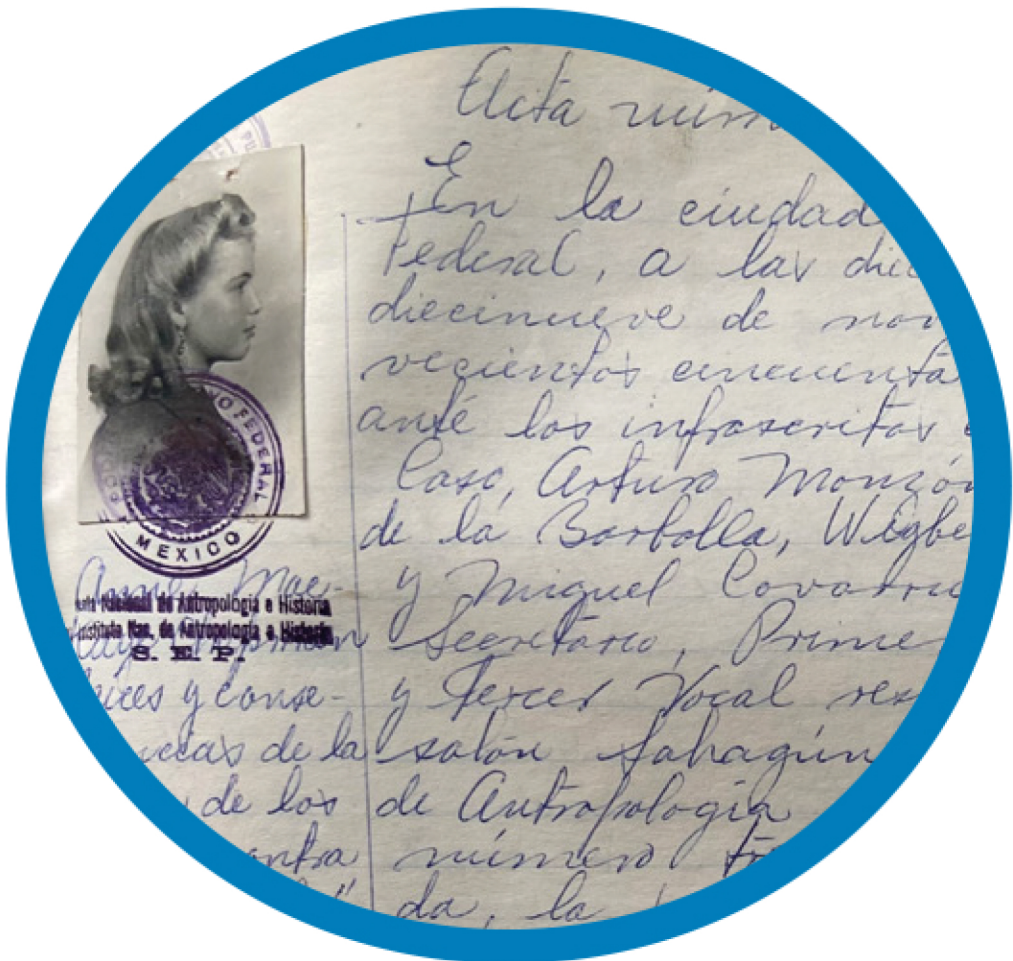 Acta
En la ciudad
Federal, a las
diecinueve de
vecientos cincuenta
ante los infrascritos
Caso, Arturo Monzón
de la Borbolla, Wigbe
y Miguel Covarru
Secretario, Prime
y Tercer Vocal res
salón Sahagún
de Antropología
número
da, la
O FEDERAL
MEXICO
Nacional de Antropología e Historia
Instituto Nac. de Antropología e Historia
S. E. P.
Anne Mae-
y Conse-
de la
de los